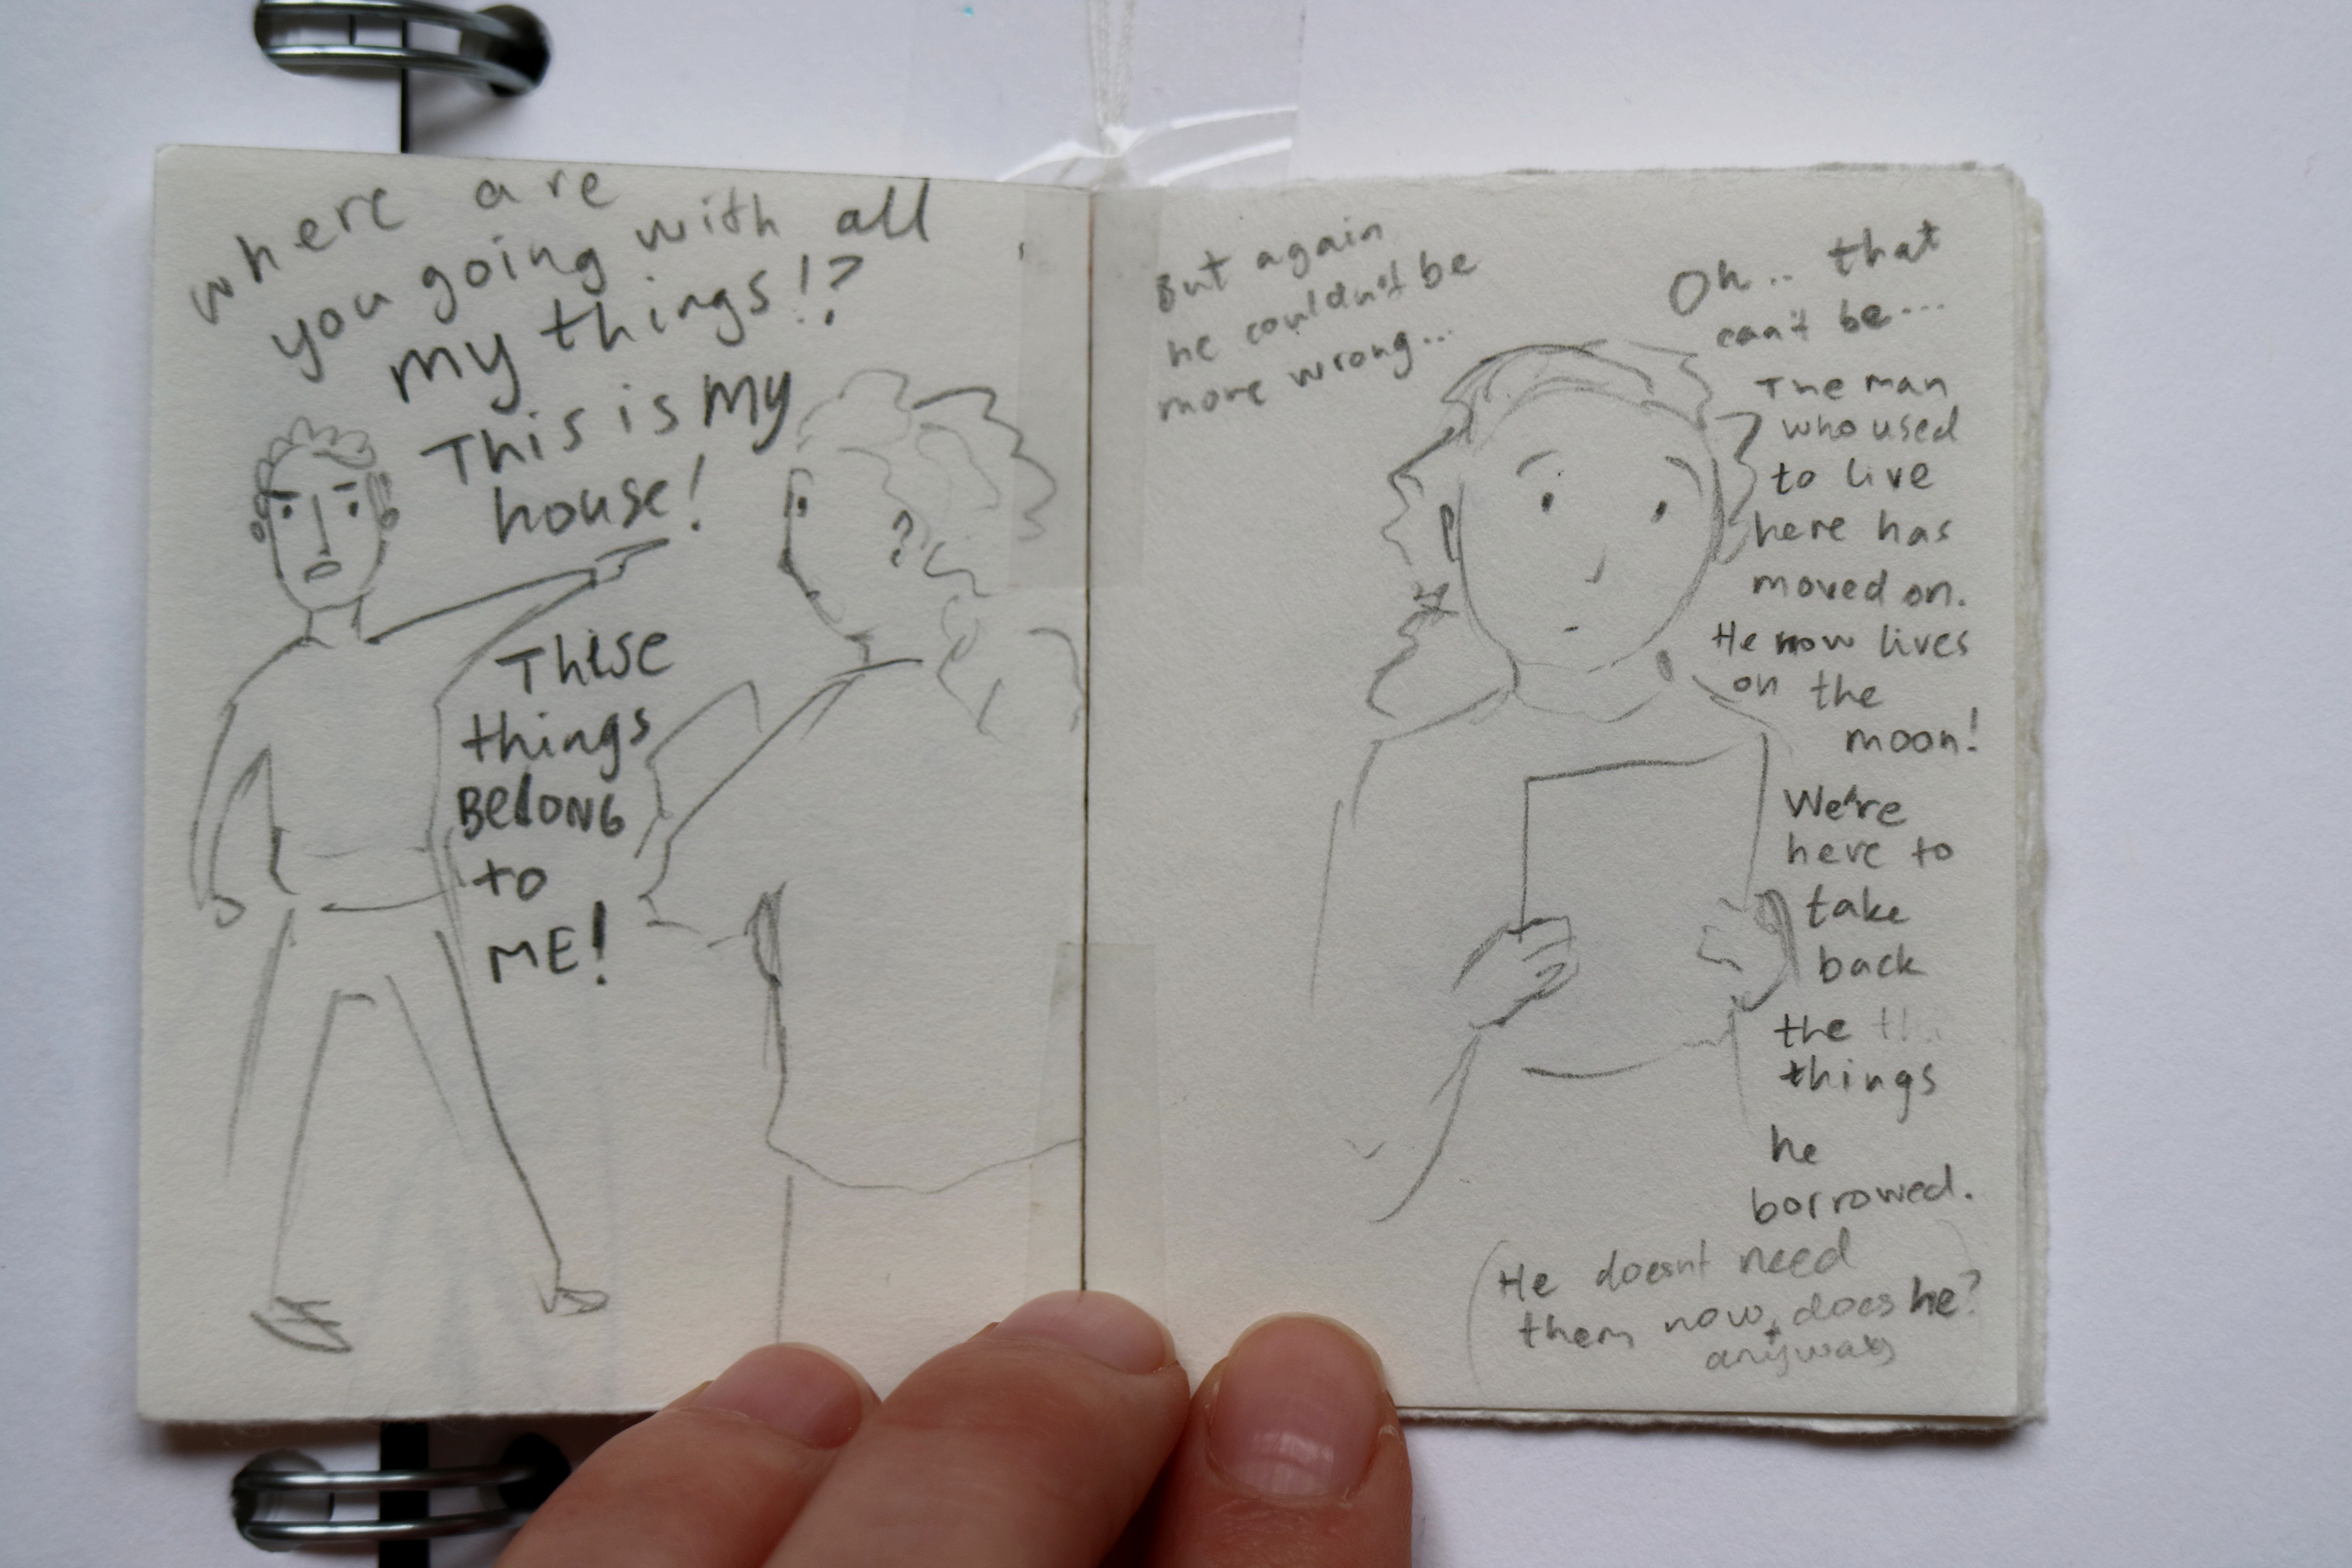 where are
you going with all
my things!?
This is my
house!
These
things
BelONG
to
ME!
But again
he couldn't be
more wrong...
Oh.. that
can't be...
The man
who used
to live
here has
moved on.
He now lives
on the
moon!
We're
here to
take
back
the th
things
he
borrowed.
(He doesnt need
them now, does he?
anyway